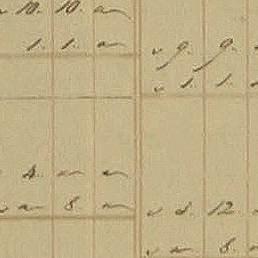 10. 10. "
1. 1. "
" 9. 9.
" 1. 1.
4. " "
" " 8. "
" 8. 12.
" " 8.